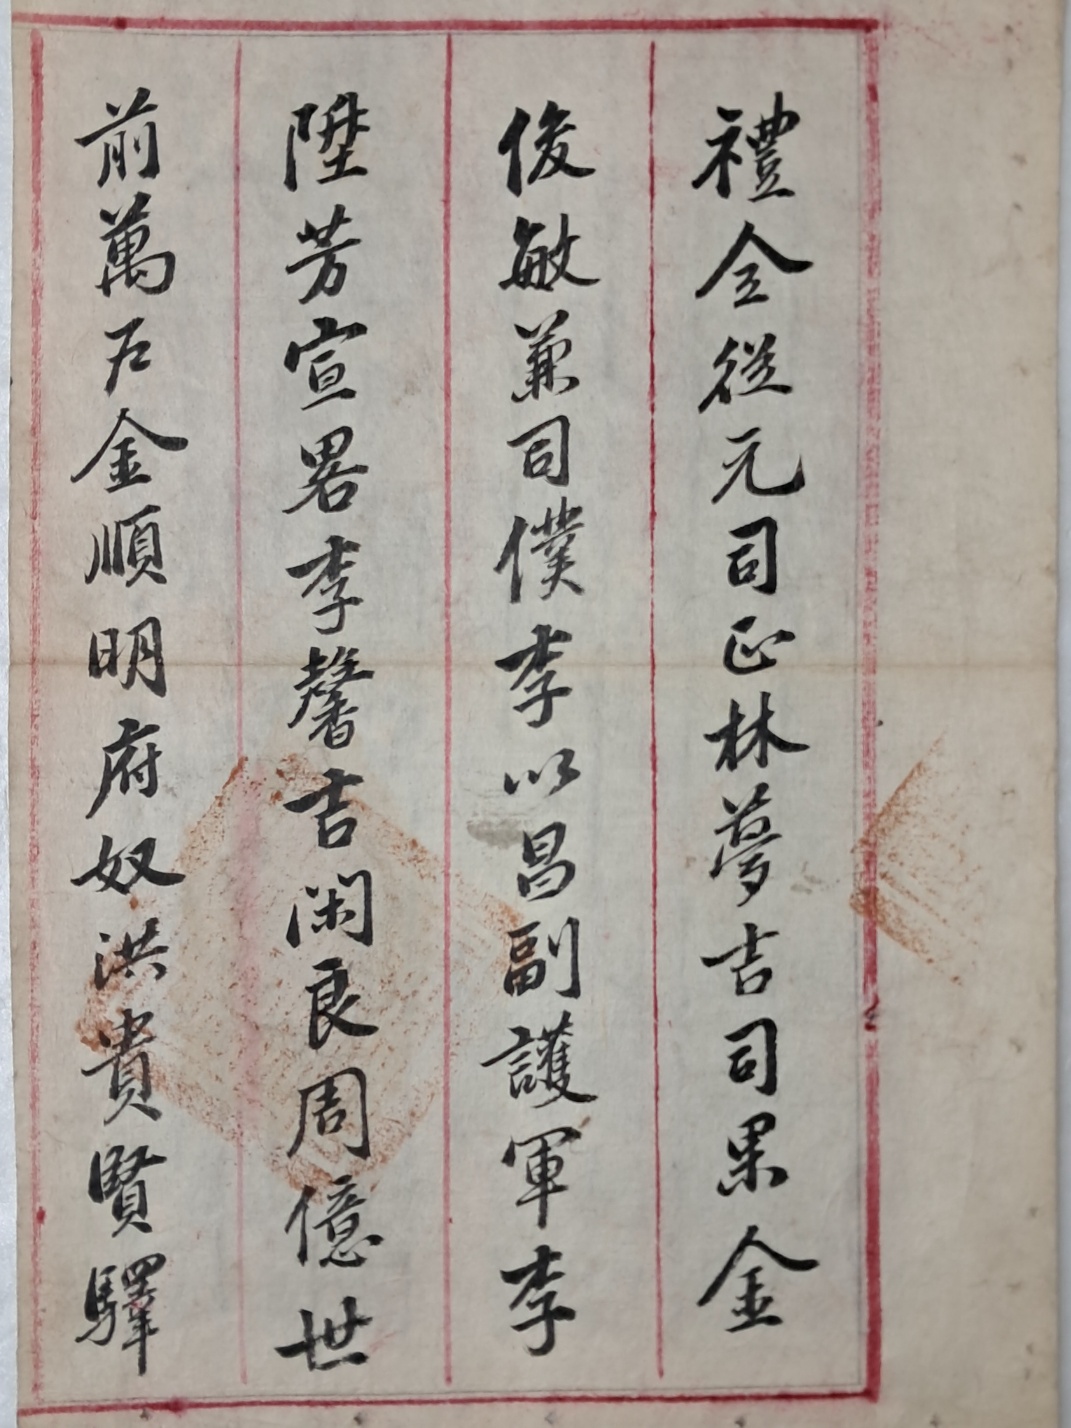 禮仝從元司正林夢吉司果金
俊敏兼司僕李以昌副護軍李
陞芳宣畧李馨吉閑良周億世
前萬戶金順明府奴洪貴賢驛